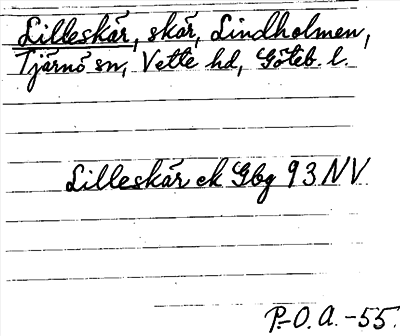 Lilleskär, skär, Lindholmen,
Tjärnö sn, Vette hd, Göteb. l.
Lilleskär ek Gbg 93 NV
P.-O. A. -55.